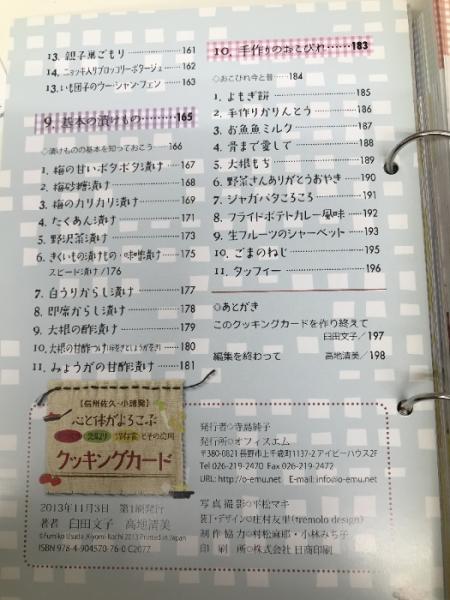 13. 親子巣ごもり 161
14. ニョッキ入りブロッコリーポタージュ 162
13. いも団子のウー・シャン・フェン 163
9. 基本の漬けもの 165
◇漬けものの基本を知っておこう 166
1. 梅の甘いポタポタ漬け 167
2. 梅砂糖漬け 168
3. 梅のカリカリ漬け 169
4. たくあん漬け 171
5. 野沢菜漬け 173
6. きくいも漬けもの・味噌漬け 175
スピード漬け/176
7. 白うりからし漬け 177
8. 即席からし漬け 178
9. 大根の酢漬け 179
10. 大根の甘酢つけ 180
11. みょうがの甘酢漬け 181
10. 手作りのおこびれ 183
◇おこびれ今と昔 184
1. よもぎ餅 185
2. 手作りかりんとう 186
3. お魚ミルク 187
4. 骨まで愛して 188
5. 大根もち 189
6. 野菜さんありがとうおやき 190
7. ジャガバタころころ 191
8. フライドポテトカレー風味 192
9. 生フルーツのシャーベット 193
10. ごまのねじ 195
11. タッフィー 196
◇あとがき
このクッキングカードを作り終えて
臼田文子/197
編集を終わって 高地清美/198
【信州佐久・小諸発】
心と体がよろこぶ
保存食 とその応用
クッキングカード
2013年11月3日 第1刷発行
著者 臼田文子 高地清美
©Fumiko Usuda, Kiyomi Kochi 2013 Printed in Japan
ISBN 978-4-904570-76-0 C2077
発行者◇寺島純子
発行所◇オフィスエム
〒380-0821 長野市上千歳町1137-2 アイビーハウス2F
Tel 026-219-2470 Fax 026-219-2472
URL: http://o-emu.net E-mail: info@o-emu.net
写真撮影◇平松マキ
装丁・デザイン◇庄村友里(tremolo design)
制作協力◇村松麻耶・小林みち子
印刷所◇株式会社 日商印刷